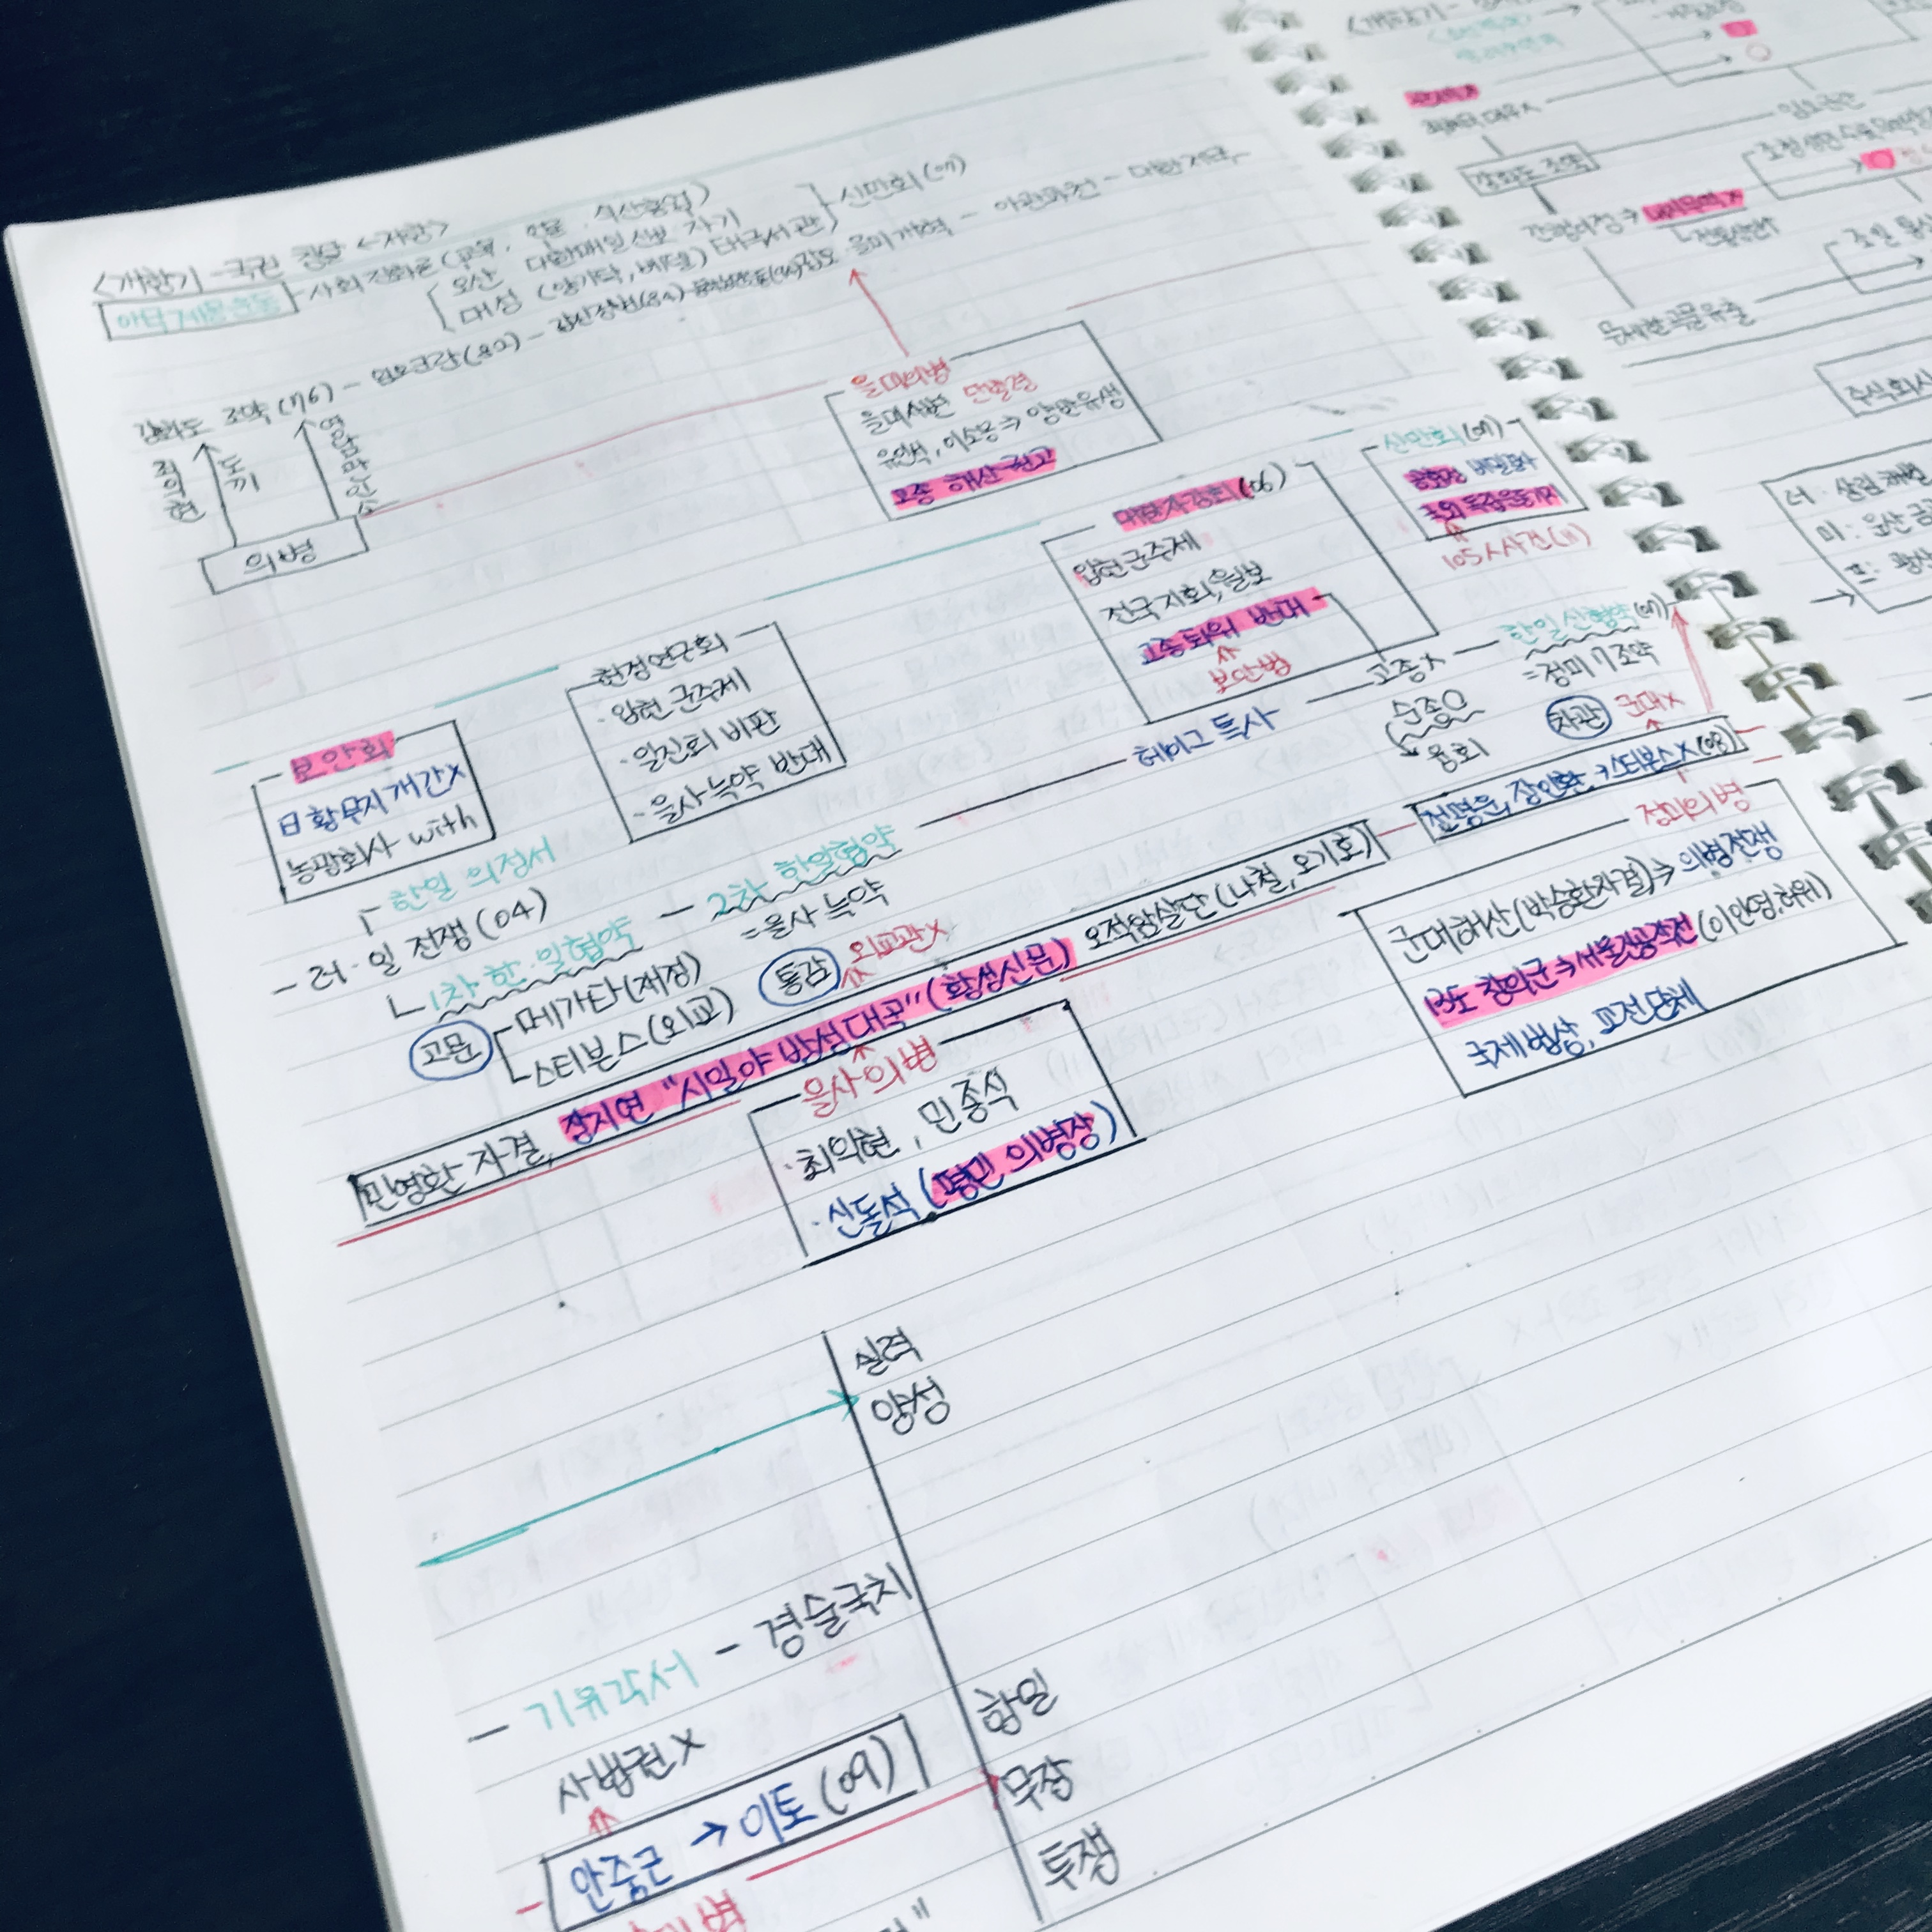 <개항기 - 국권 <저항>
애국계몽운동 - 사회진화론(교육, 언론, 식산흥업)
오산 대한매일신보 자기
대성 (양기탁, 베델) 태극서관
신민회(07)
강화도 조약(76) - 임오군란(82) - 갑신정변(84) - 을미개혁 - 아관파천 - 대한제국
최익현
도끼
영남만인소
의병
을미의병
을미사변 단발령
유인석, 이소응 → 양반유생
고종 해산권고
신민회(07)
공화정 비밀결사
국외 독립운동기지
105人사건(11)
대한자강회(06)
입헌군주제
전국 지회, 월보
고종퇴위 반대
보안법
헌정연구회
· 입헌 군주제
· 일진회 비판
· 을사늑약 반대
보안회
日황무지개간X
농광회사 with
- 러·일 전쟁(04)
한일 의정서
1차 한·일협약 - 2차 한일협약
= 을사늑약
고문
메가타(재정)
스티븐스(외교)
통감
외교권X
헤이그 특사
고종X
순종O
융희
한일신협약(07)
= 정미7조약
차관
군대X
민영환 자결, 장지연 "시일야방성대곡"(황성신문) 오적암살단(나철, 오기호)
전명운, 장인환 → 스티븐스X(08)
을사의병
· 최익현, 민종식
· 신돌석 (평민 의병장)
정미의병
군대해산(박승환자결) → 의병전쟁
13도 창의군 → 서울진공작전(이인영, 허위)
국제법상, 교전단체
실력
양성
- 기유각서 - 경술국치
사법권X
안중근 → 이토(09)
항일
무장
투쟁
강화도 조약
무제한 곡물유출
주식회사
러 : 삼림채벌
미 : 운산금